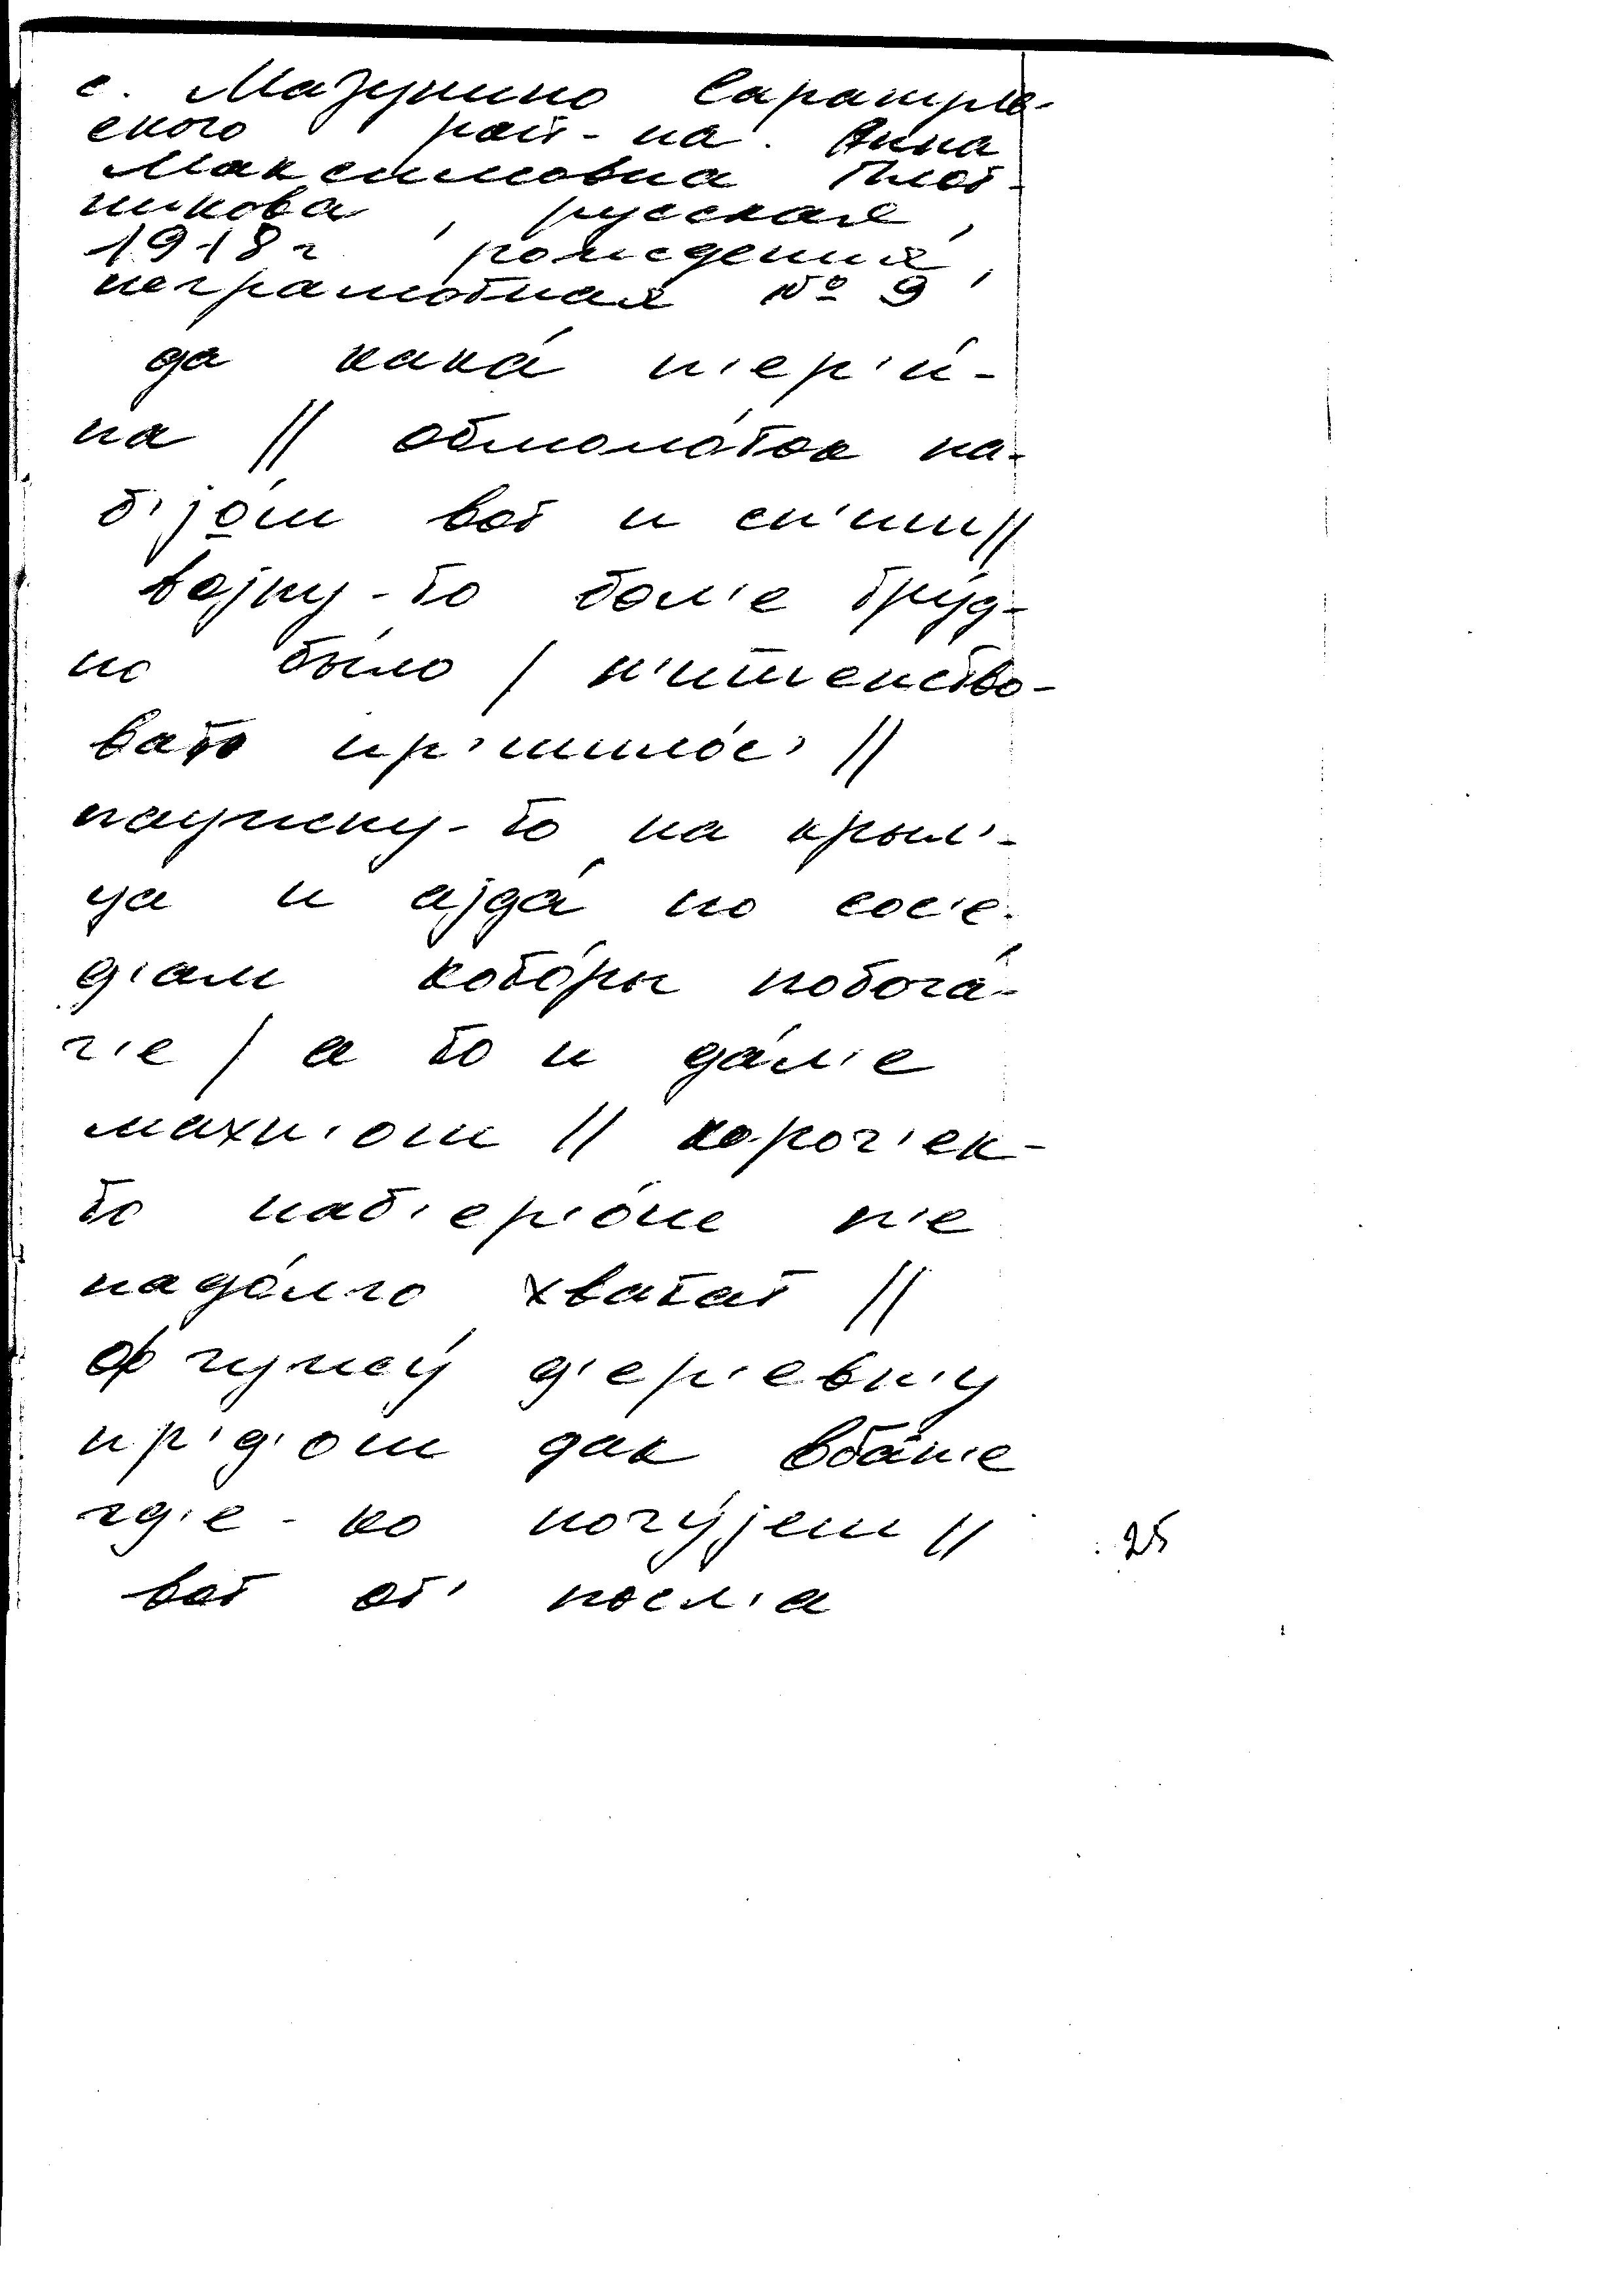 с. Мазунино Сарапуль-
ского рай-на. Анна
Максимовна Плот-
никова, русская,
1918 г рождения,
неграмотная № 9
да кака́ п'ер'и́-
на // обмоло́ток на-
б'jо́ш вот и сп'иш //
војну-то бол'е тру́д-
но бы́ло / н'ишшенство-
вать пр'ишло́с' //
паужну-то на крыл'-
ца и аjда́ по сос'е-
д'ам кото́ры побога́-
ч'е / а то и да́л'е
махн'ом // короч'ек-
то наб'ер'о́ш н'е
надо́лго хватат //
ф чужу́ д'ер'евн'у
пр'ид'ом дак вба́н'е
гд'е-ко ночу́jем //
25
вот от' посл'а